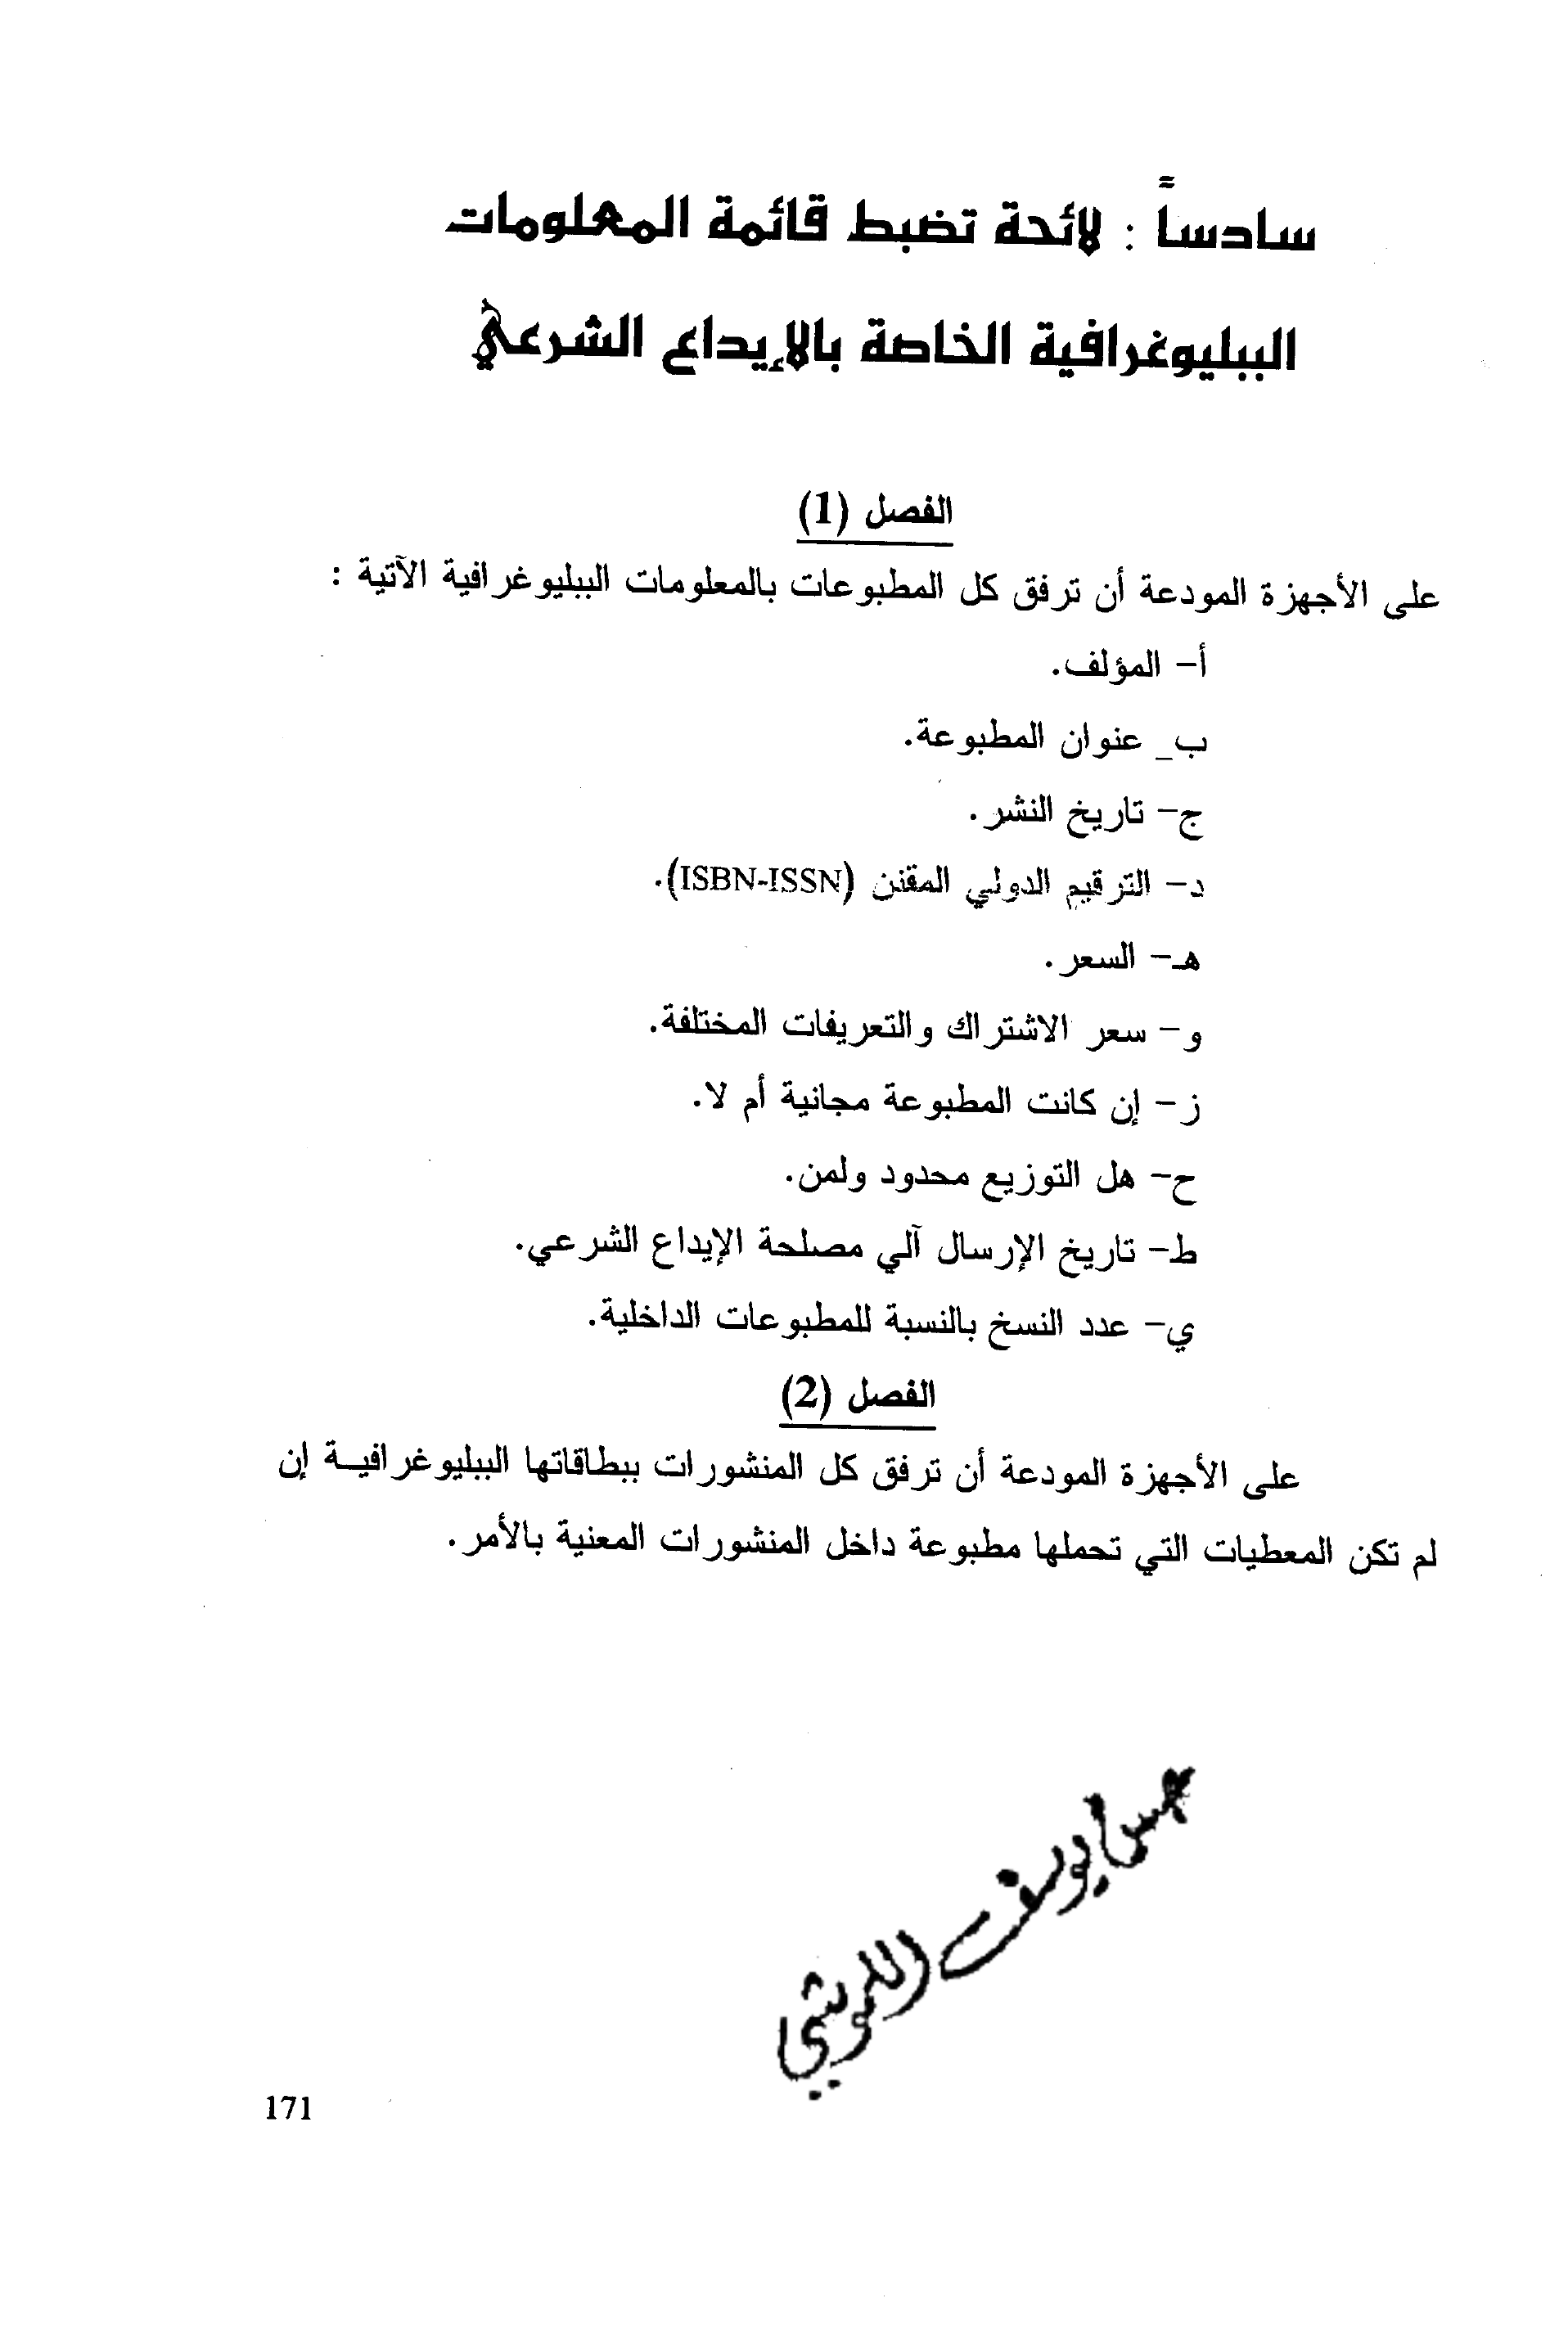 سادساً : لائحة تضبط قائمة المعلومات
الببليوغرافية الخاصة بالإيداع الشرعي
الفصل (1)
على الأجهزة المودعة أن ترفق كل المطبوعات بالمعلومات الببليوغرافية الآتية :
أ- المؤلف.
ب_ عنوان المطبوعة.
ج- تاريخ النشر.
د- الترقيم الدولي المقنن (ISBN-ISSN).
هـ- السعر.
و- سعر الاشتراك والتعريفات المختلفة.
ز- إن كانت المطبوعة مجانية أم لا.
ح- هل التوزيع محدود ولمن.
ط- تاريخ الإرسال آلي مصلحة الإيداع الشرعي.
ي- عدد النسخ بالنسبة للمطبوعات الداخلية.
الفصل (2)
على الأجهزة المودعة أن ترفق كل المنشورات ببطاقاتها الببليوغرافيــة إن
لم تكن المعطيات التي تحملها مطبوعة داخل المنشورات المعنية بالأمر.
يوسف
171